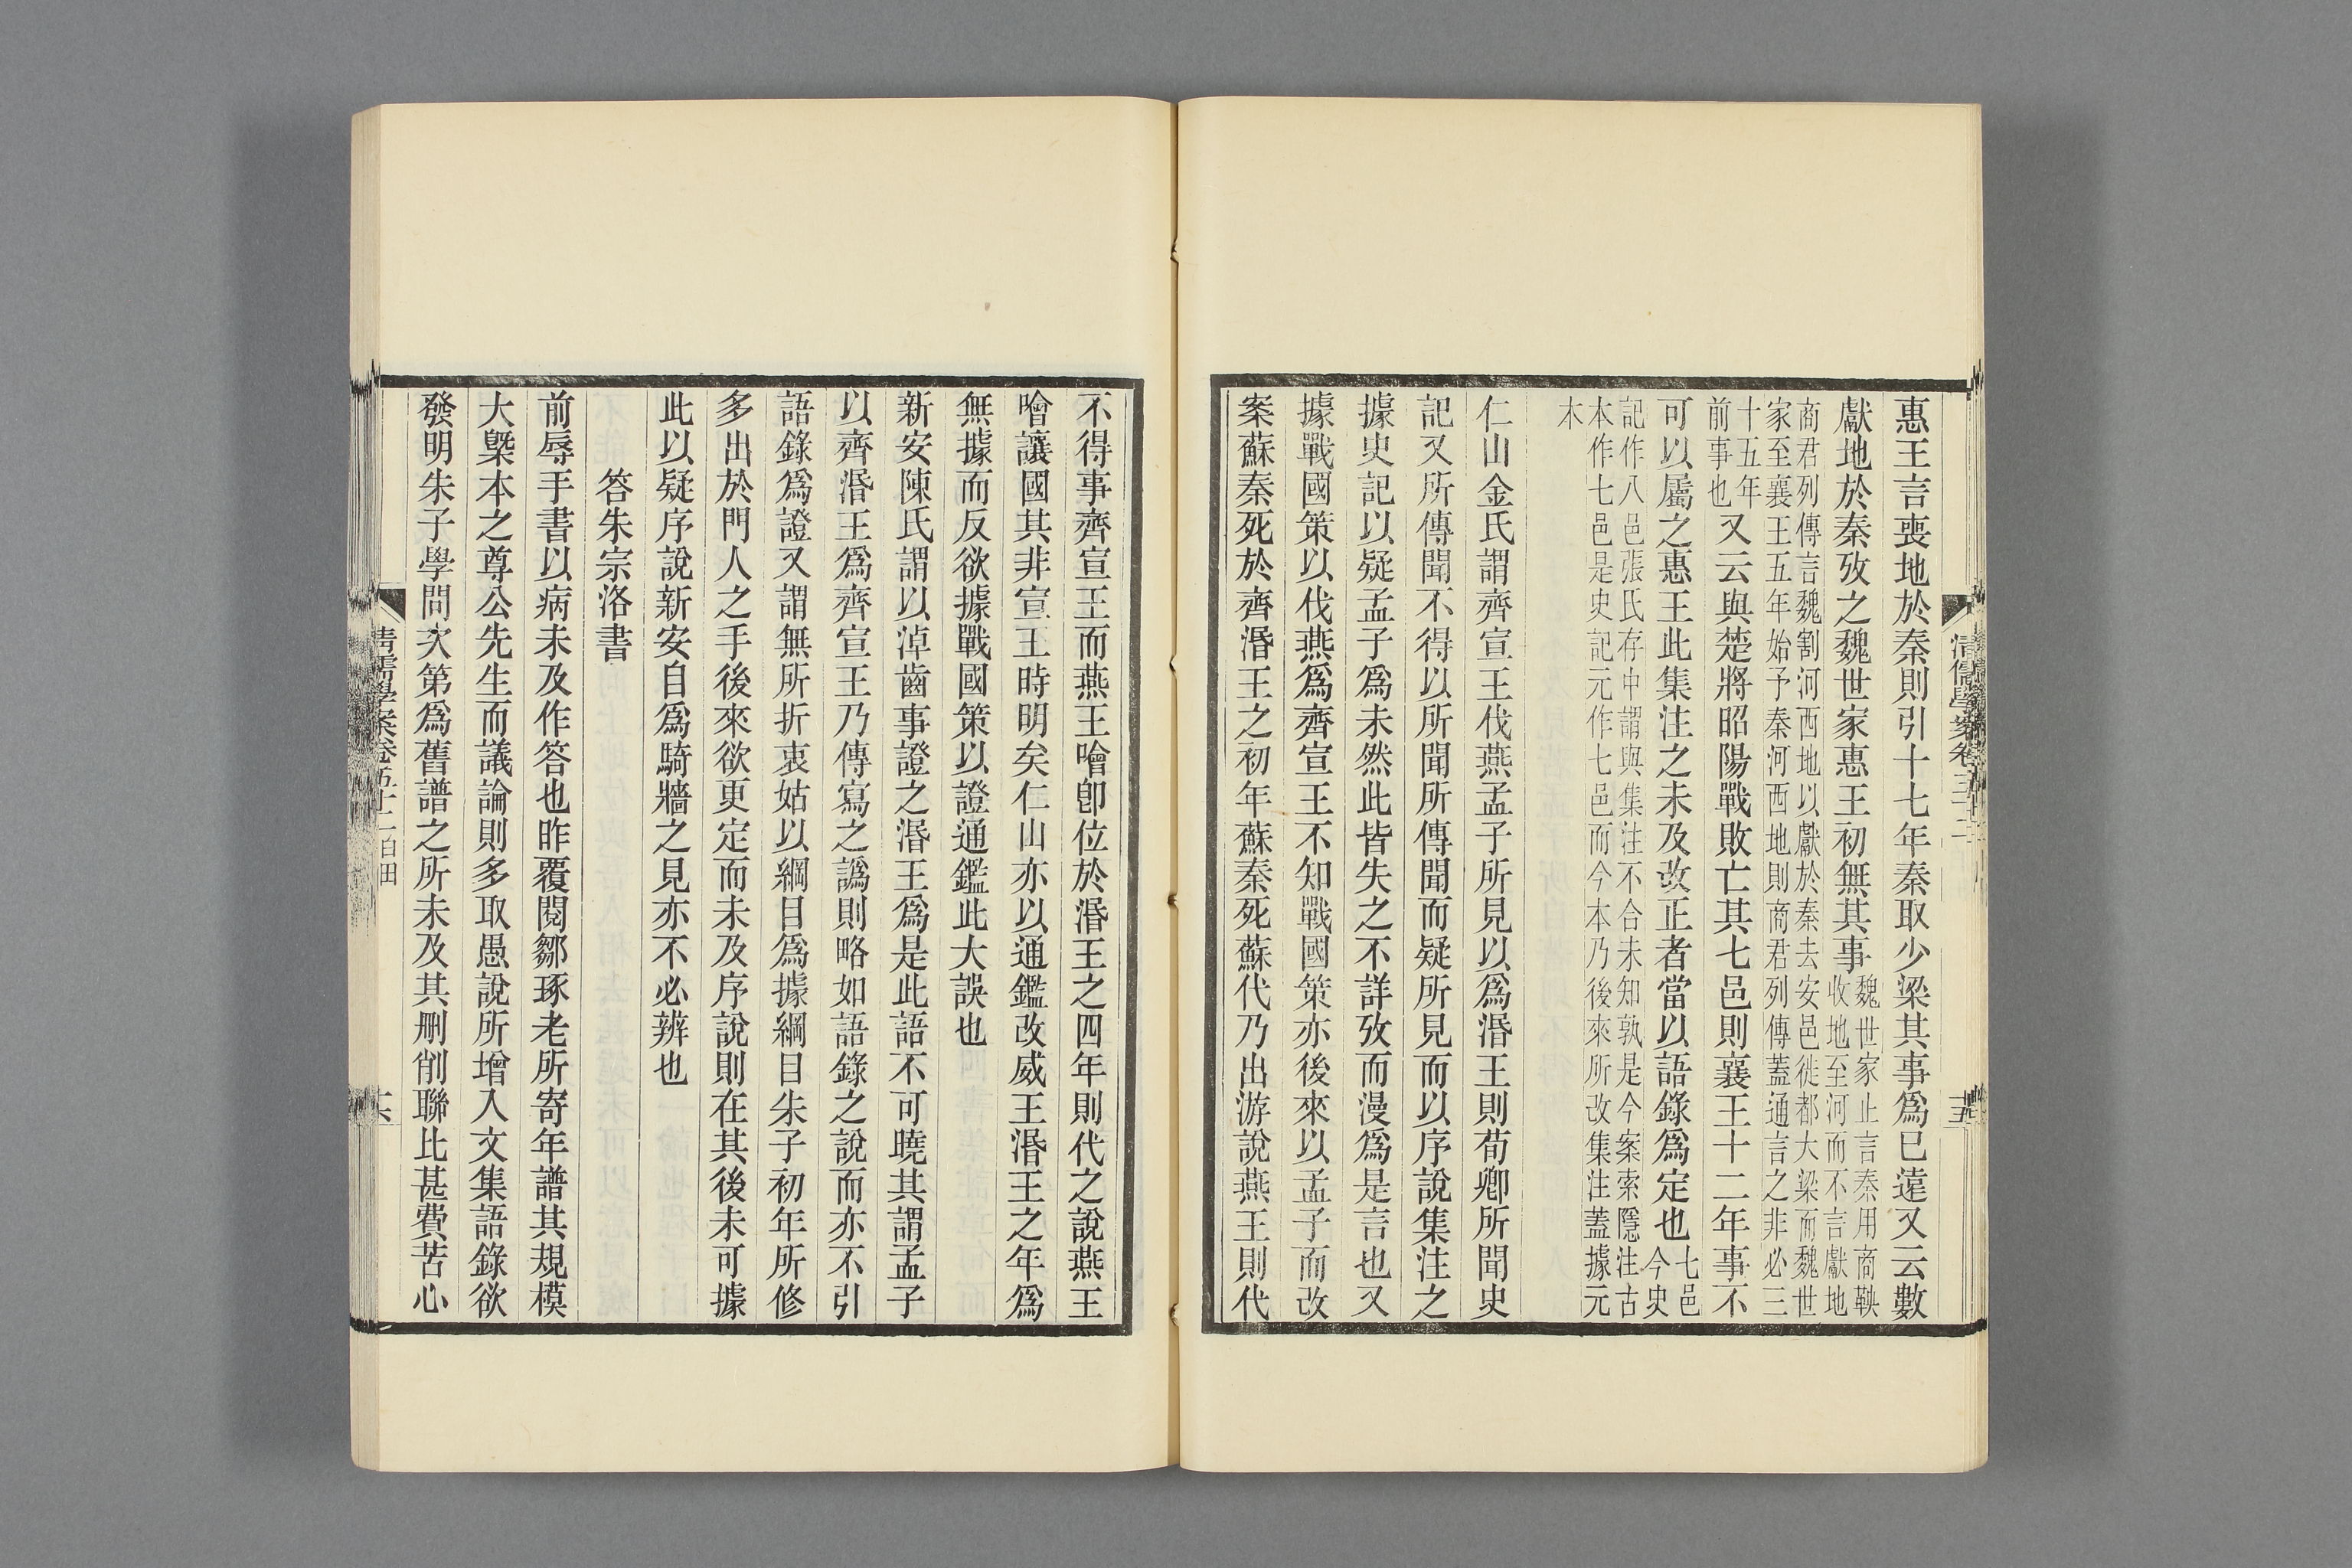 惠王言喪地於秦則引十七年秦取少梁其事爲已遠又云數
獻地於秦攷之魏世家惠王初無其事魏世家止言秦用商鞅收地至河而不言獻地
商君列傳言魏割河西地以獻於秦去安邑徙都大梁而魏世家至襄王五年始予秦河西地則商君列傳蓋通言之非必三
十五年前事也又云與楚將昭陽戰敗亡其七邑則襄王十二年事不
可以屬之惠王此集注之未及改正者當以語錄爲定也七邑今史
記作八邑張氏存中謂與集注不合未知孰是今案索隱注古本作七邑是史記元作七邑而今本乃後來所改集注蓋據元
木
仁山金氏謂齊宣王伐燕孟子所見以爲湣王則荀卿所聞史
記又所傳聞不得以所聞所傳聞而疑所見而以序說集注之
據史記以疑孟子爲未然此皆失之不詳攷而漫爲是言也又
據戰國策以伐燕爲齊宣王不知戰國策亦後來以孟子而改
案蘇秦死於齊湣王之初年蘇秦死蘇代乃出游說燕王則代
清儒學案卷五十二
十五
不得事齊宣王而燕王噲卽位於湣王之四年則代之說燕王
噲讓國其非宣王時明矣仁山亦以通鑑改威王湣王之年爲
無據而反欲據戰國策以證通鑑此大誤也
新安陳氏謂以淖齒事證之湣王爲是此語不可曉其謂孟子
以齊湣王爲齊宣王乃傳寫之譌則略如語錄之說而亦不引
語錄爲證又謂無所折衷姑以綱目爲據綱目朱子初年所修
多出於門人之手後來欲更定而未及序說則在其後未可據
此以疑序說新安自爲騎牆之見亦不必辨也
答朱宗洛書
前辱手書以病未及作答也昨覆閱鄒琢老所寄年譜其規模
大槩本之尊公先生而議論則多取愚說所增入文集語錄欲
發明朱子學問次第爲舊譜之所未及其刪削聯比甚費苦心
清儒學案卷五十二 白田
十六